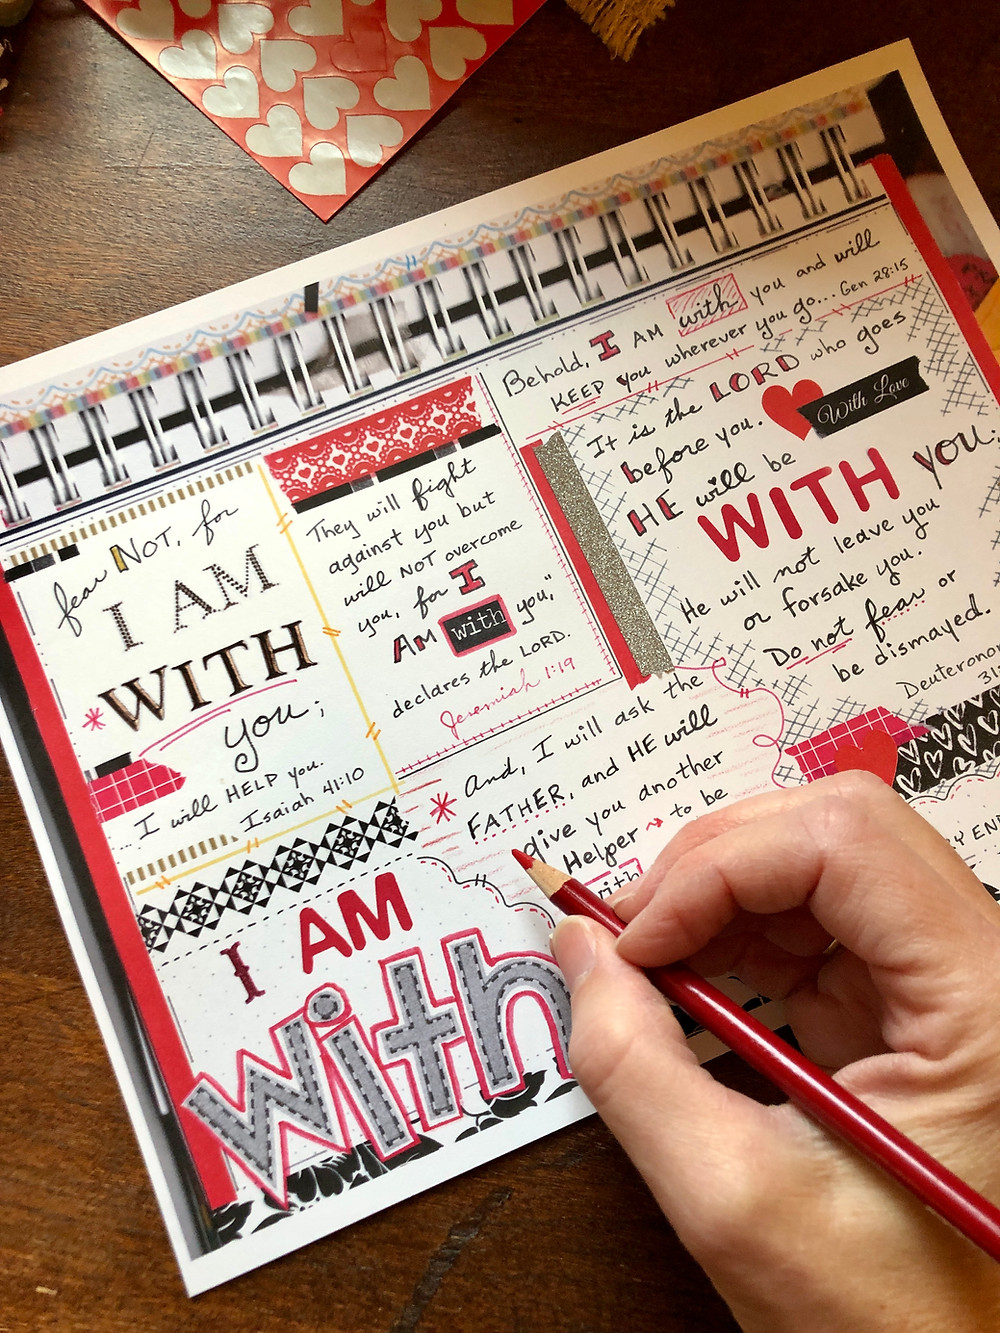 fear NOT, for
I AM
WITH
you;
I will HELP you.
Isaiah 41:10
They will fight
against you but
will NOT overcome
you, for I
AM with you,"
declares the LORD.
Jeremiah 1:19
Behold, I AM with you and will
KEEP you wherever you go... Gen 28:15
It is the LORD who goes
before you.
With Love
HE will be
WITH you.
He will not leave you
or forsake you.
Do not fear or
be dismayed.
Deuterono
31
And, I will ask the
FATHER, and HE will
give you another
Helper → to be
with
I AM
with